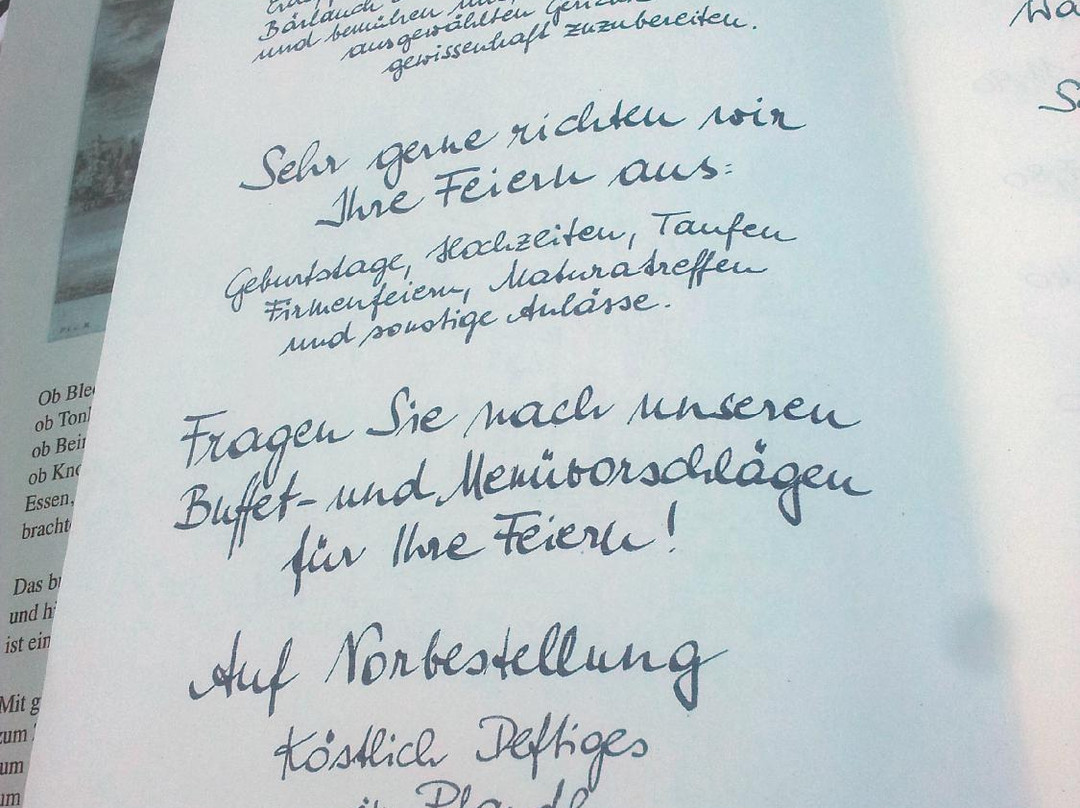 Bärlauch
und bemühen
ausgewählten
gewissenhaft zuzubereiten.
Sehr gerne richten wir
Ihre Feiern aus:
Geburtstage, Hochzeiten, Taufen
Firmenfeiern, Maturatreffen
und sonstige Anlässe.
Fragen Sie nach unseren
Buffet- und Menüvorschlägen
für Ihre Feiern!
Auf Vorbestellung
Köstlich Deftiges
Ob
ob
ob
ob
Essen,
Das
und
ist
Mit